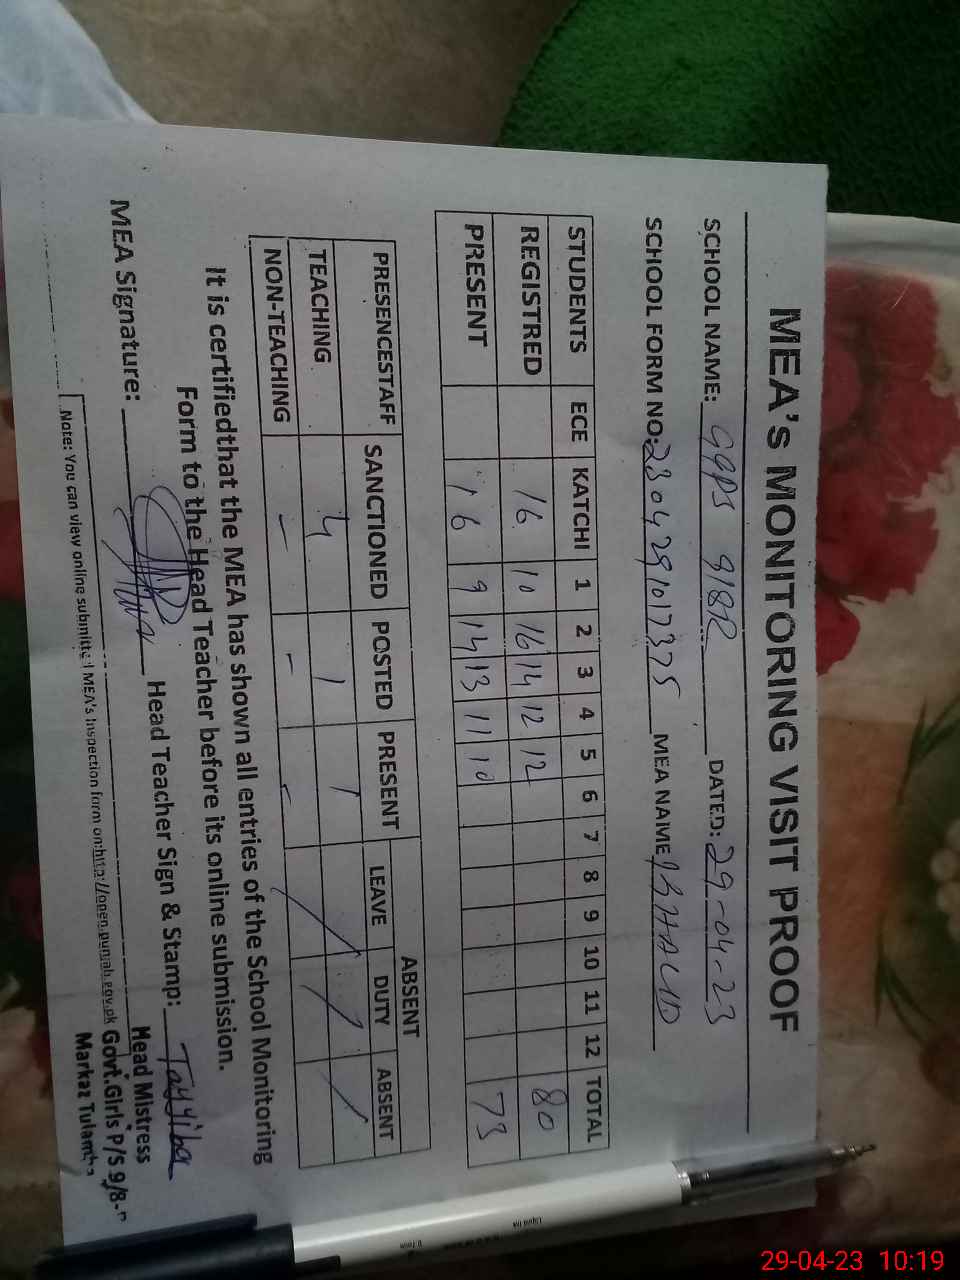 MEA's MONITORING VISIT PROOF
SCHOOL NAME: GGPS 9/8R DATED: 29-04-23
SCHOOL FORM NO: 2304291017375 MEA NAME KHALID
STUDENTS ECE KATCHI 1 2 3 4 5 6 7 8 9 10 11 12 TOTAL
REGISTRED 16 10 16 14 12 12 80
PRESENT 16 9 14 13 11 10 73
PRESENCESTAFF SANCTIONED POSTED PRESENT ABSENT
LEAVE DUTY ABSENT
TEACHING 4 1 1 / / /
NON-TEACHING - - -
It is certifiedthat the MEA has shown all entries of the School Monitoring
Form to the Head Teacher before its online submission.
MEA Signature: Head Teacher Sign & Stamp: Tayyiba
Head Mistress
Govt.Girls P/S 9/8-R
Markaz Tulamba
Note: You can view online submitted MEA's Inspection form on:http://open.punjab.gov.pk
Liquid Ink
29-04-23 10:19